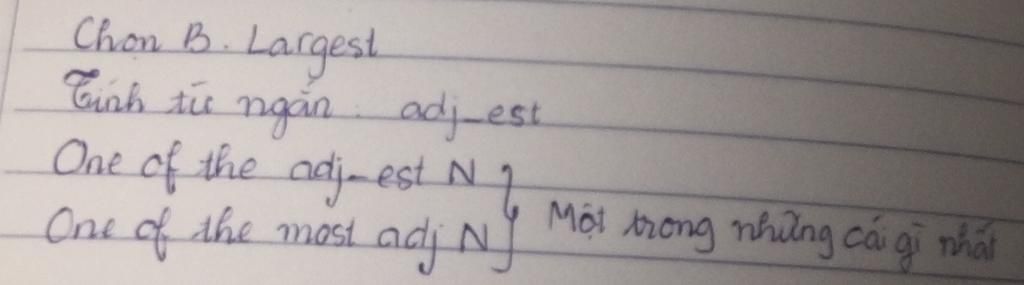 Chọn B. Largest
Tính từ ngắn. adj-est
One of the adj-est N
One of the most adj N } Một trong những cái gì nhất